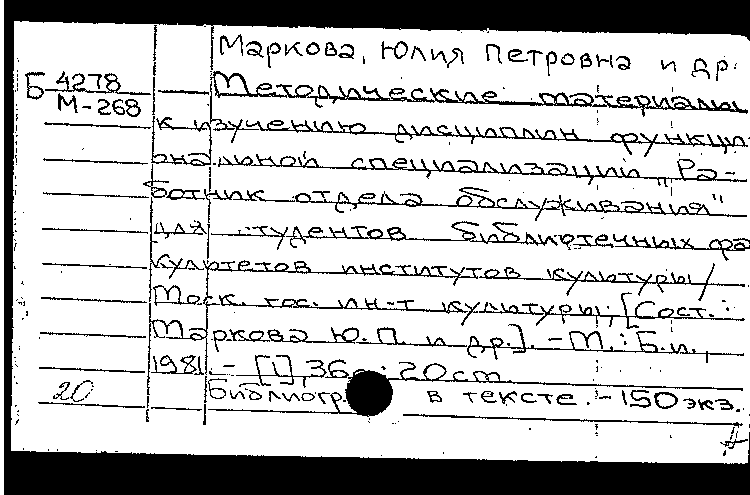 Маркова, Юлия Петровна и др.
Б 4278
М-268
Методические материалы
к изучению дисциплин функци
ональной специализации „Ра-
ботник отдела обслуживания"
для студентов библиотечных фа
культетов институтов культуры/
Моск. гос. ин-т культуры; [Сост.:
Маркова Ю.П. и др.]. - М.: Б.и.,
1981. - [1], 36с.; 20cm.
20
Библиогр. в тексте. - 150 экз.